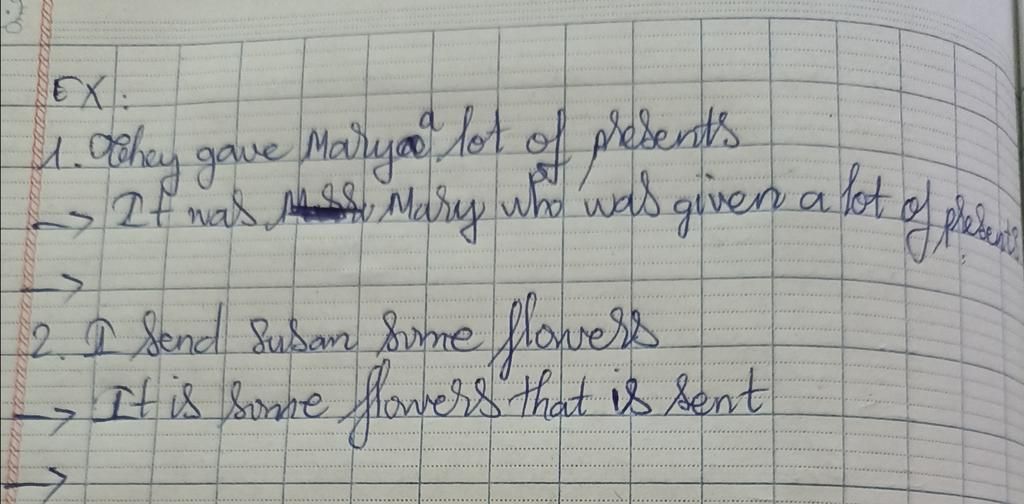 EX:
1. They gave Mary a lot of presents
→ It was Mary who was given a lot of presents
→
2. I send Susan some flowers
→ It is some flowers that is sent
→